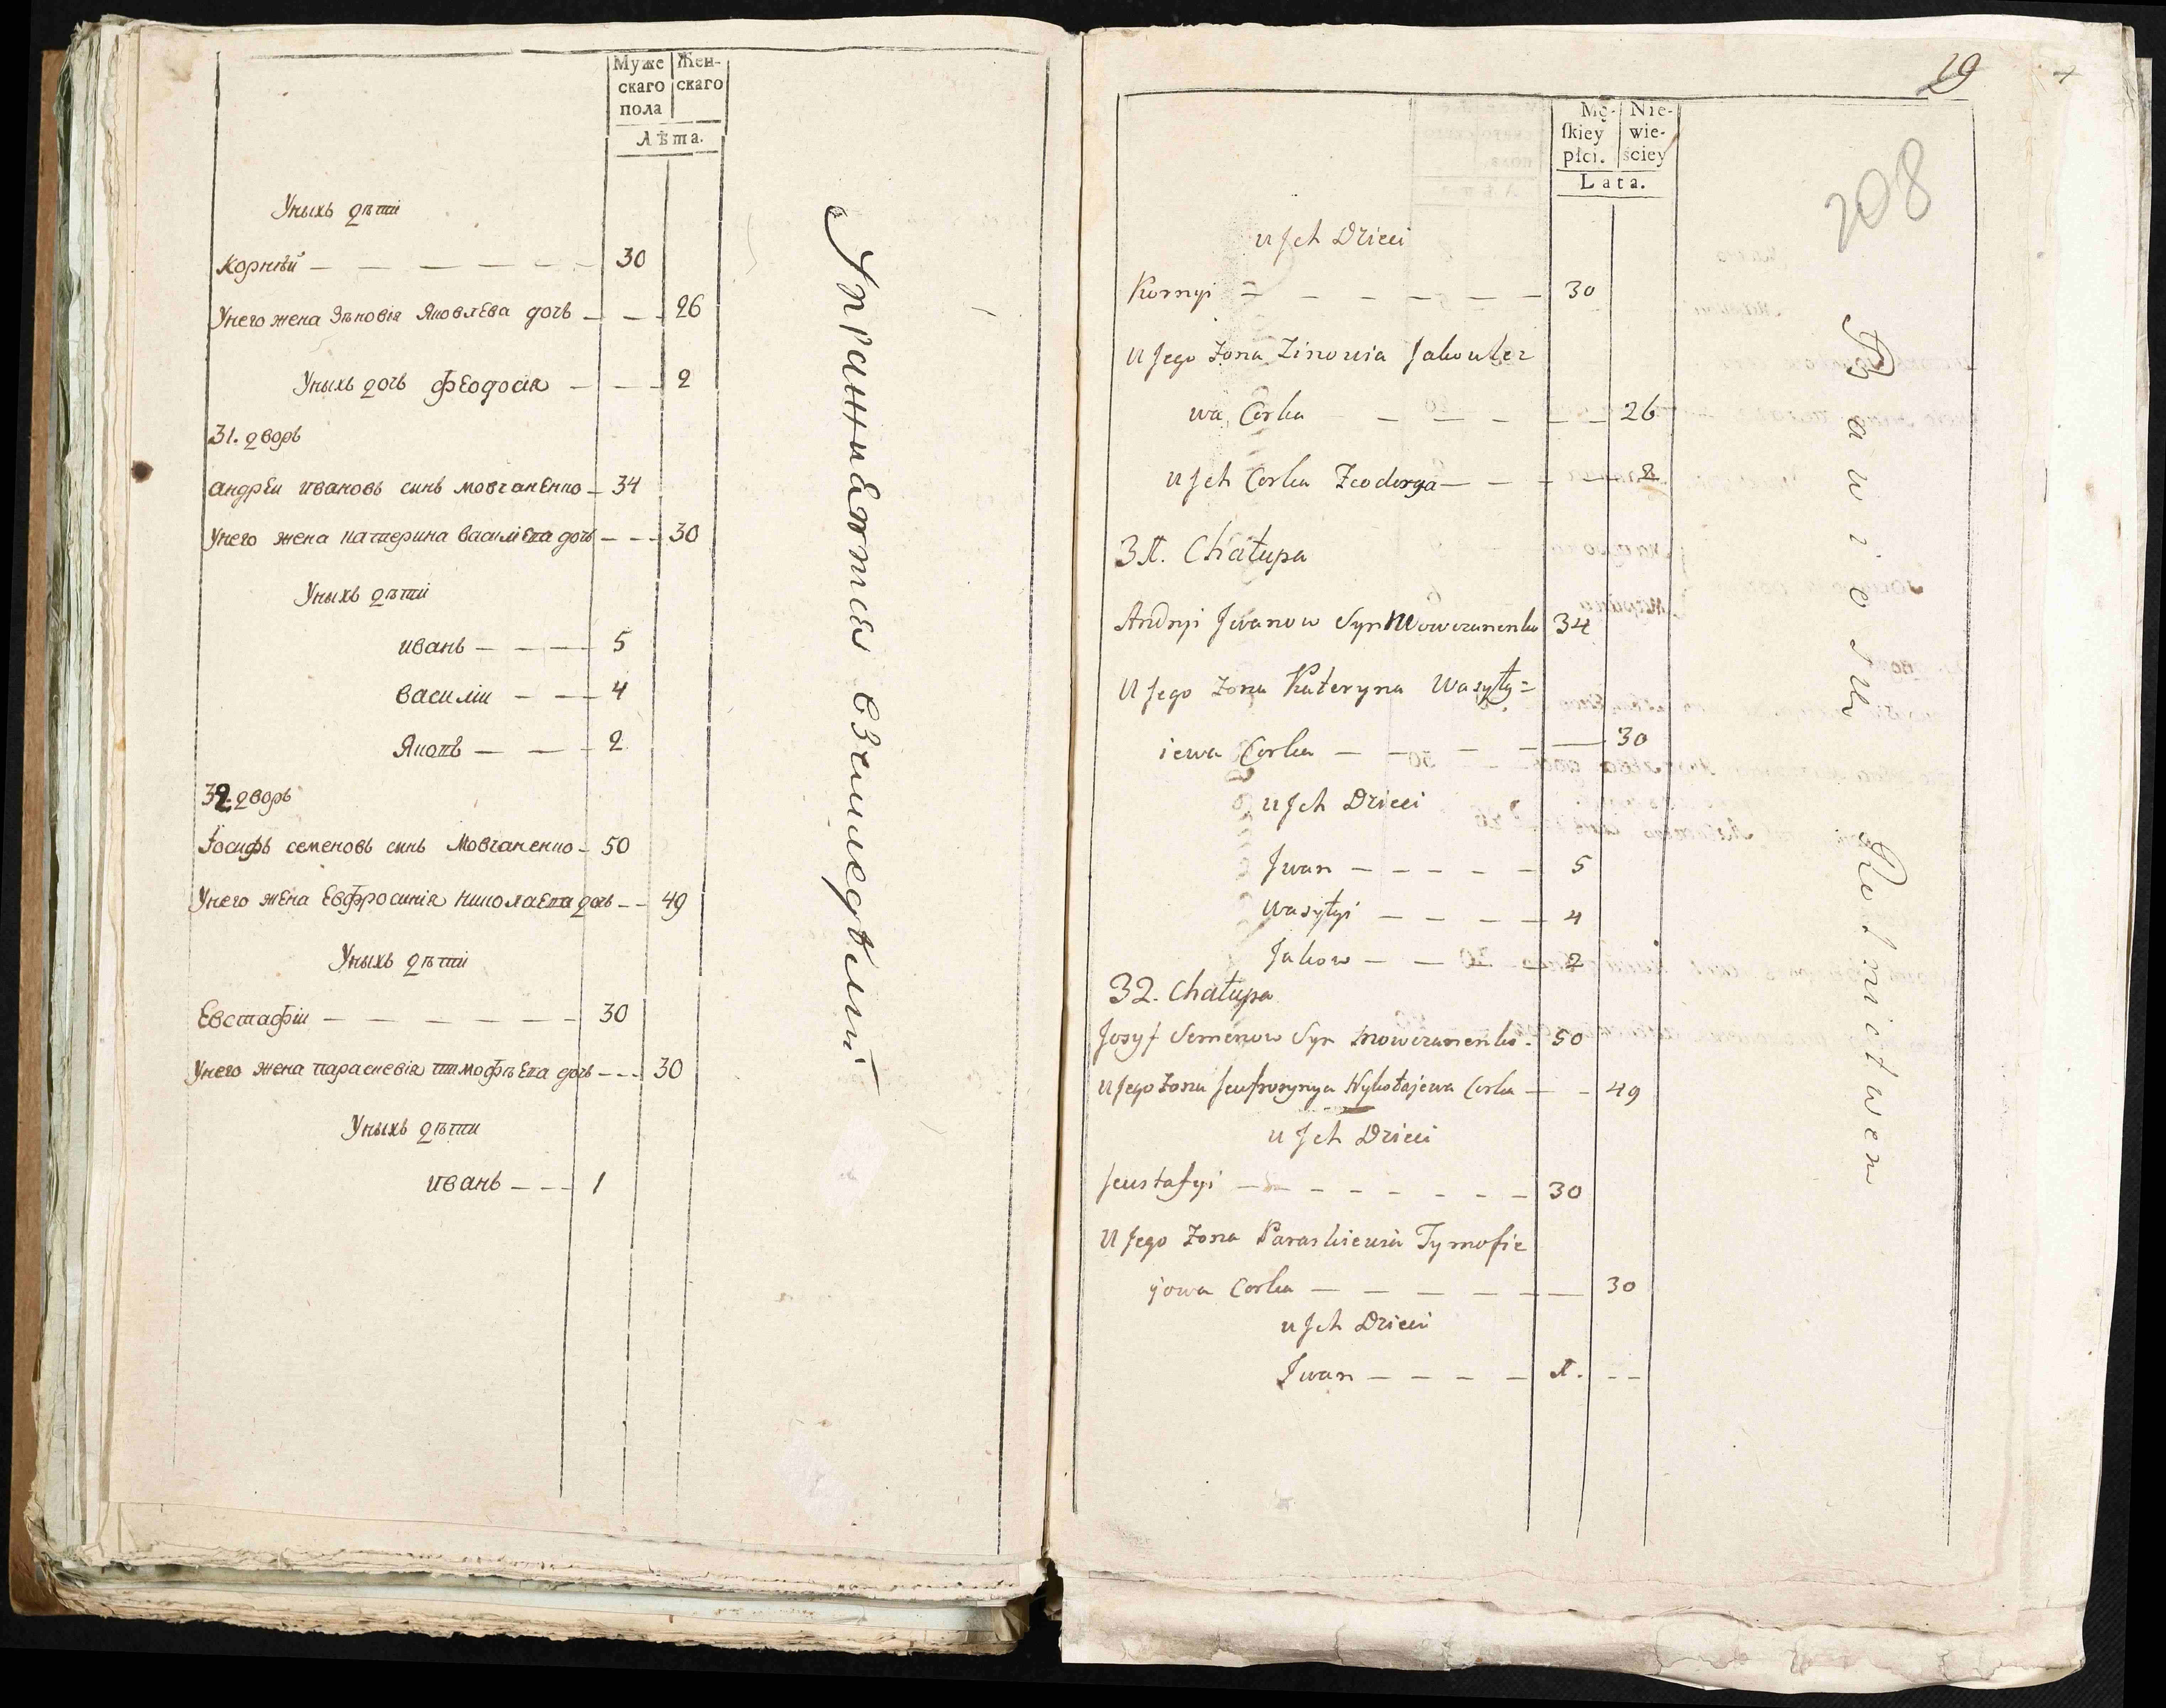 Муже
скаго
пола
Жен-
скаго
Лѣта.
Уныхъ дѣти
Корнѣй — — — — — — 30
Унего жена Зѣновія Яковлева дочь — — 26
Уныхъ дочь Феодосія — — 2
31. дворъ
Андрѣи Ивановъ синъ Мовчаненко — 34
Унего жена Катерина Василіева дочь — — 30
Уныхъ дѣти
Иванъ — — — 5
Василіи — — 4
Яковъ — — — 2
32. дворъ
Іосифъ Семеновъ синъ Мовчаненко — 50
Унего жена Евфросинія Николаева дочь — — 49
Уныхъ дѣти
Евстафіи — — — — — — 30
Унего жена Параскевія Тимофѣева дочь — — 30
Уныхъ дѣти
Иванъ — — 1
Упражняются вземледѣлий
19
208
Mę-
skiey
płci.
Nie-
wie-
ściey
Lata.
u Jch Dzieci
Kornyi — — — — — — 30
U Jego Zona Zinowia Jakowle=
wa Corka — — — — — 26
u Jch Corka Teodozya — — — — 2
31. Chałupa
Andryi Jwanow Syn Mowczanenko 34
U Jego Zona Kateryna Wasyły=
iewa Corka — — — — — 30
u Jch Dzieci
Jwan — — — — — 5
Wasyłyi — — — — 4
Jakow — — — — 2
32. Chałupa
Josyf Semenow Syn Mowczanenko. 50
U Jego Zona Jeufrozynya Nykołajewa Corka — — 49
u Jch Dzieci
Jeustafyi — — — — — — — 30
U Jego Zona Paraskiewia Tymofie
jowa Corka — — — — — — 30
u Jch Dzieci
Jwan — — — — 1. - -
Bawio sie Rolnictwem